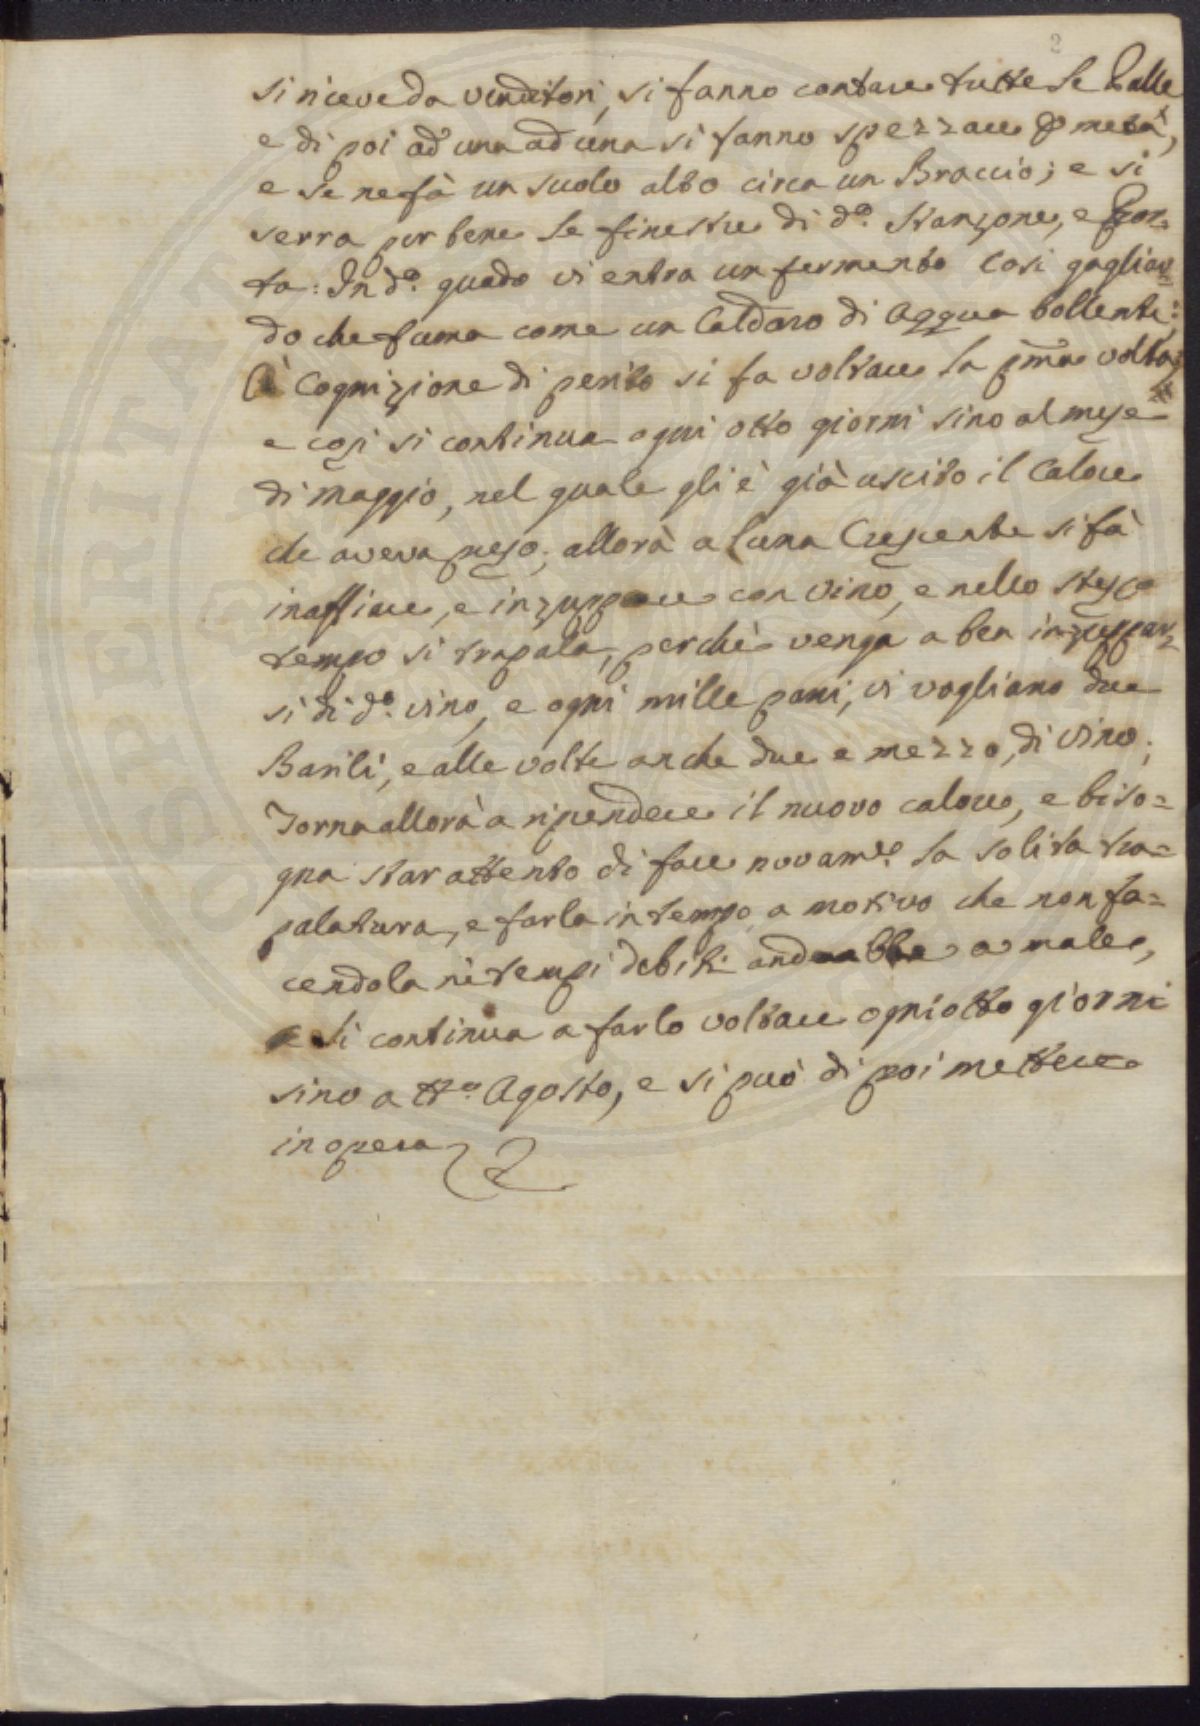 2
si riceve da venditori, si fanno contare tutte le Palle
e di poi ad una ad una si fanno spezzare p metà,
e se ne fà un suolo alto circa un Braccio; e si
serra per bene le finestre di do. stanzone, e Por=
ta: In do. quado vi entra un fermento Cosi gagliar=
do che fuma come un Caldaro di Acqua bollente:
A Cognizione di perito si fa voltare la pma volta;
e cosi si continua ogni otto giorni sino al mese
di maggio, nel quale gli è già uscito il Calore
che aveva preso; allorà a luna Crescente si fà
inaffiare, e inzuppare con vino, e nello stesso
tempo si trapala, perche venga a ben inzuppar=
si di do. vino, e ogni mille pani, vi vogliano due
Barili, e alle volte anche due e mezzo, di vino;
Torna allorà a riprendere il nuovo calore, e biso=
gna star attento di fare novamte. la solita tra=
palatura, e farla in tempo a motivo che non fa=
cendola nè tempi debiti anderebbe a male,
e si continua a farlo voltare ogni otto giorni
sino a tto. Agosto, e si può di poi mettere
in opera